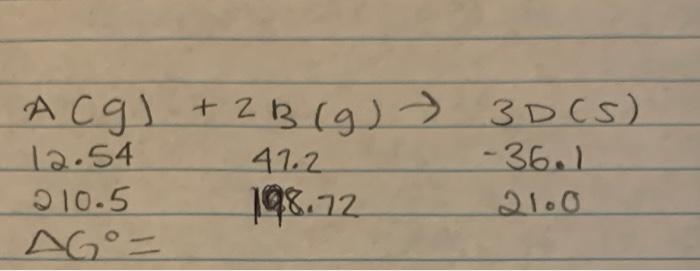 A(g) + 2B(g) → 3D(s)
12.54 47.2 -36.1
210.5 198.72 21.0
ΔG° =